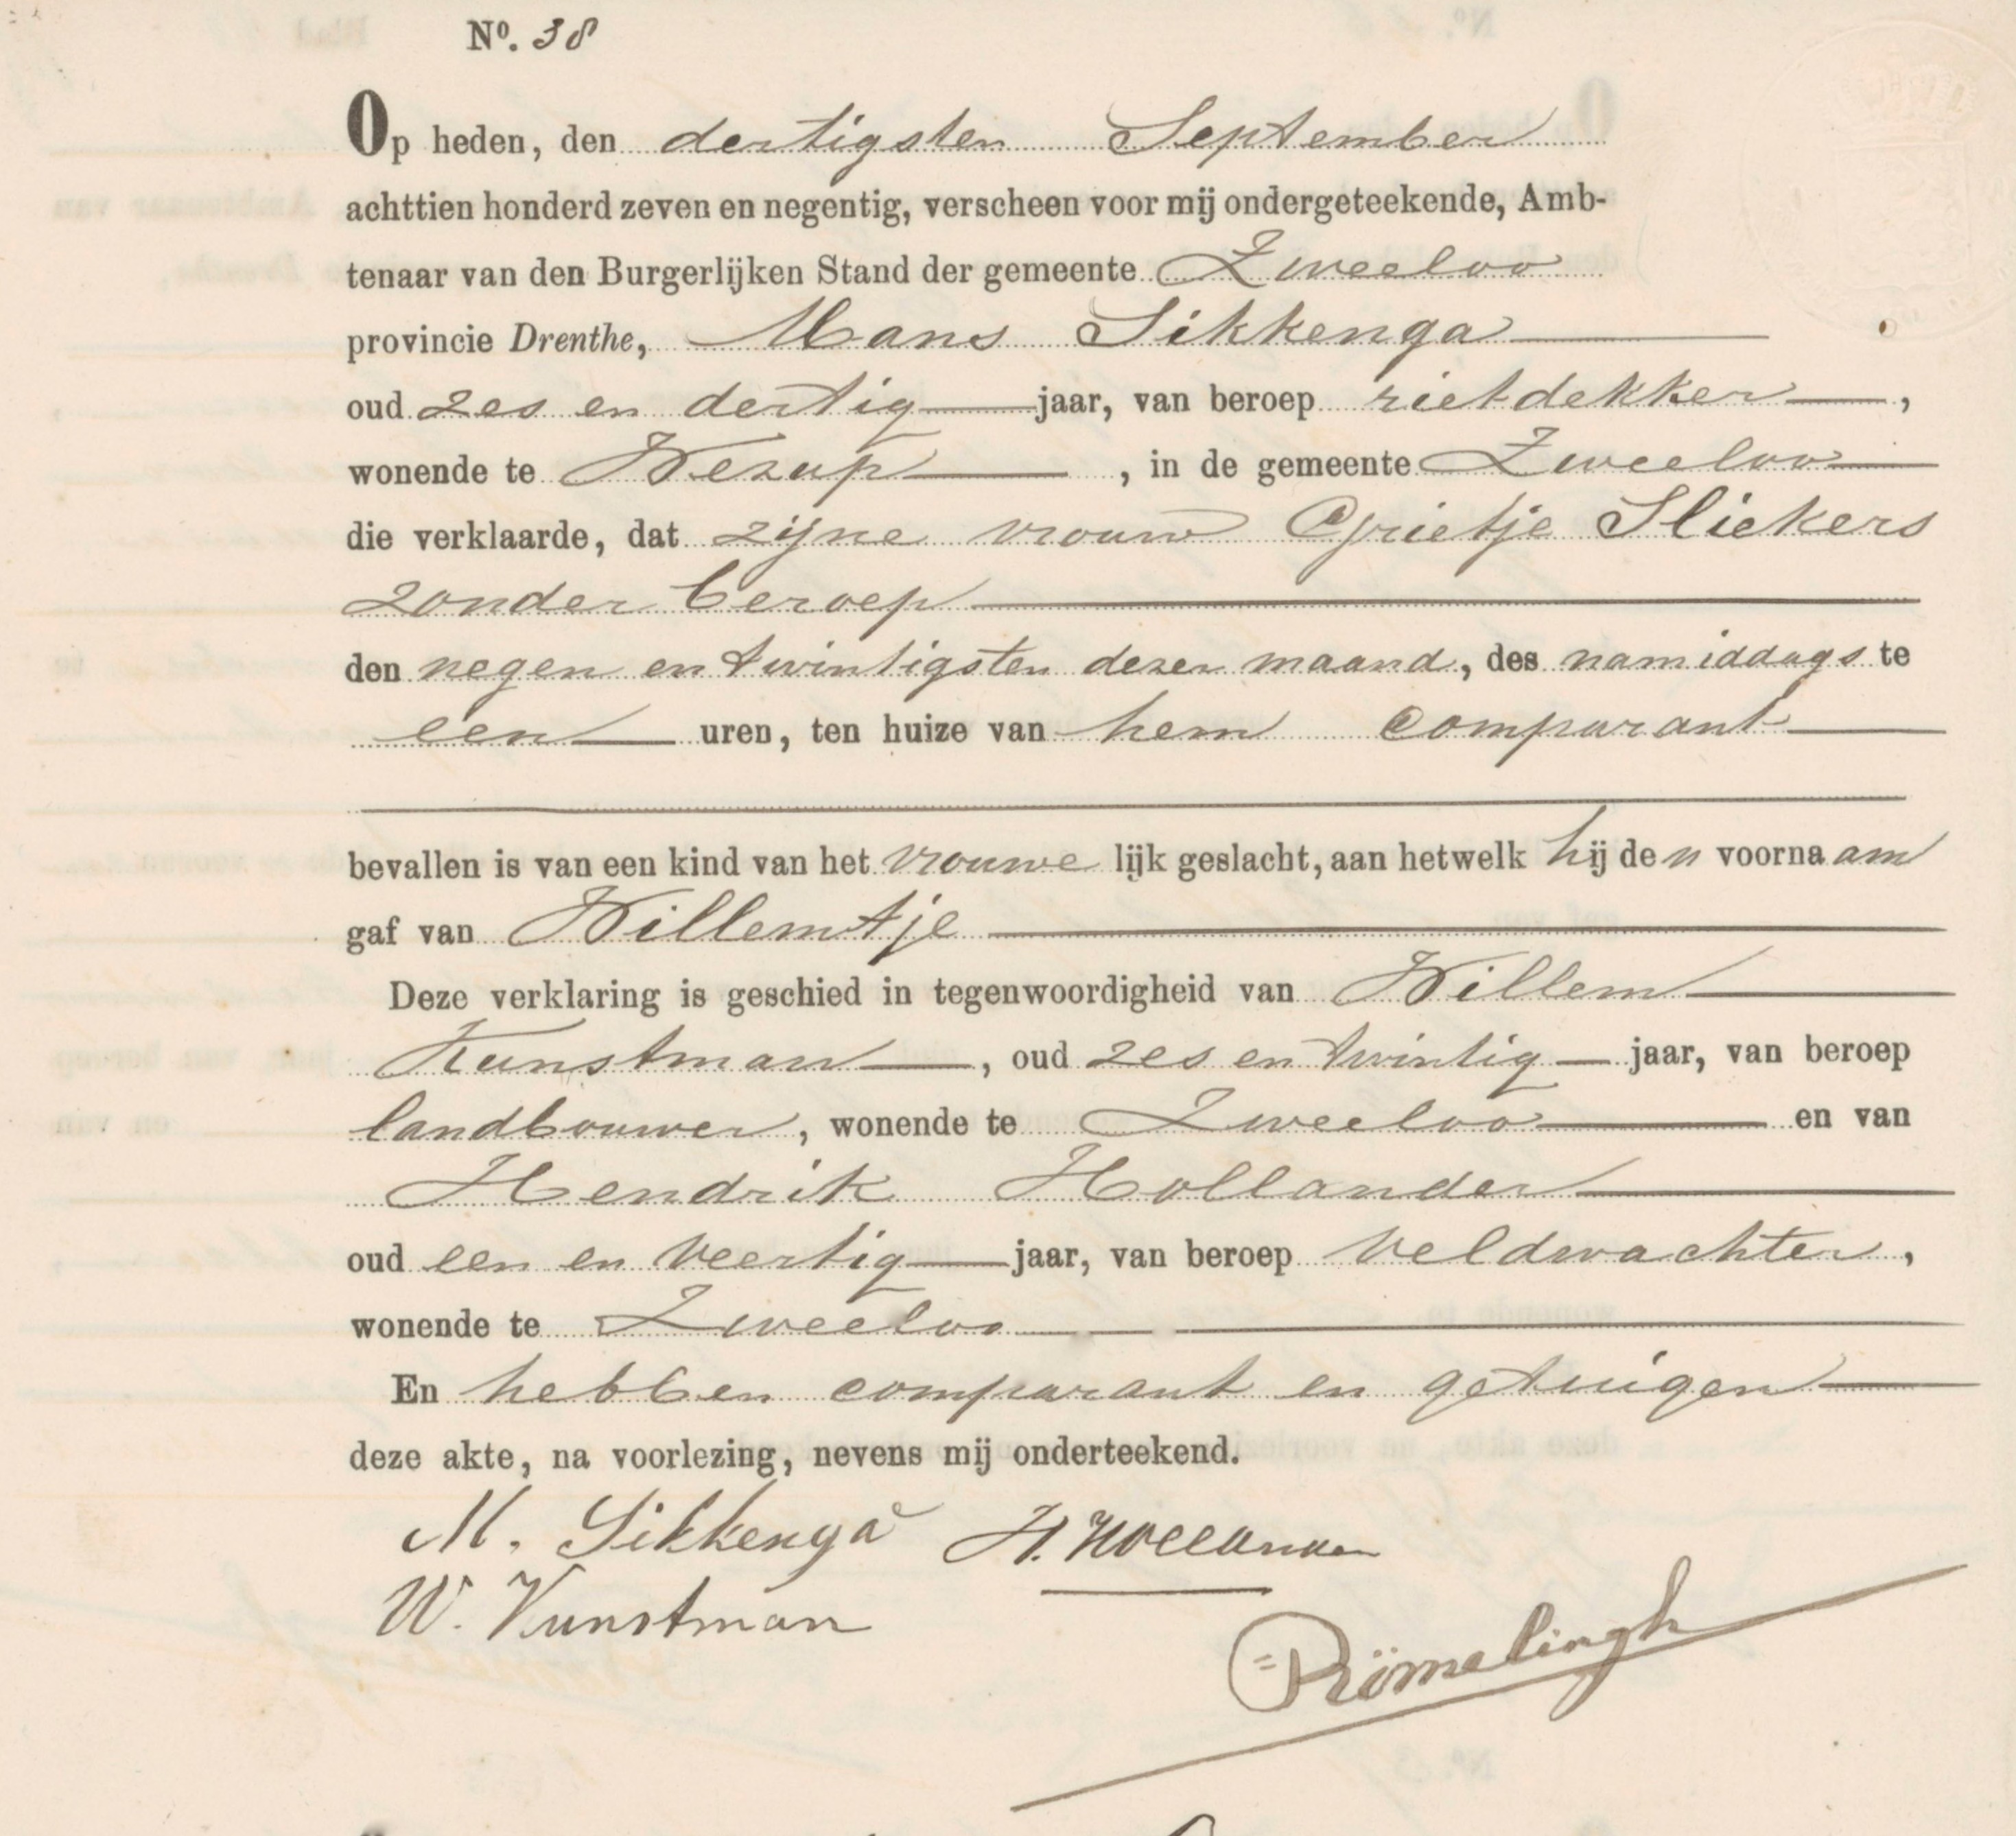 Nº. 38
Op heden, den dertigsten September
achttien honderd zeven en negentig, verscheen voor mij ondergeteekende, Amb-
tenaar van den Burgerlijken Stand der gemeente Zweeloo
provincie Drenthe, Mans Sikkenga
oud zes en dertig jaar, van beroep rietdekker,
wonende te Wezup, in de gemeente Zweeloo
die verklaarde, dat zijne vrouw Grietje Sliekers
zonder beroep
den negen en twintigsten dezer maand, des namiddags te
een uren, ten huize van hem comparant
bevallen is van een kind van het vrouwelijk geslacht, aan hetwelk hij den voornaam
gaf van Willemtje
Deze verklaring is geschied in tegenwoordigheid van Willem
Kunstman, oud zes en twintig jaar, van beroep
landbouwer, wonende te Zweeloo en van
Hendrik Hollander
oud een en veertig jaar, van beroep veldwachter,
wonende te Zweeloo
En hebben comparant en getuigen
deze akte, na voorlezing, nevens mij onderteekend.
M. Sikkenga H. Hollander
W. Kunstman
Römelingh